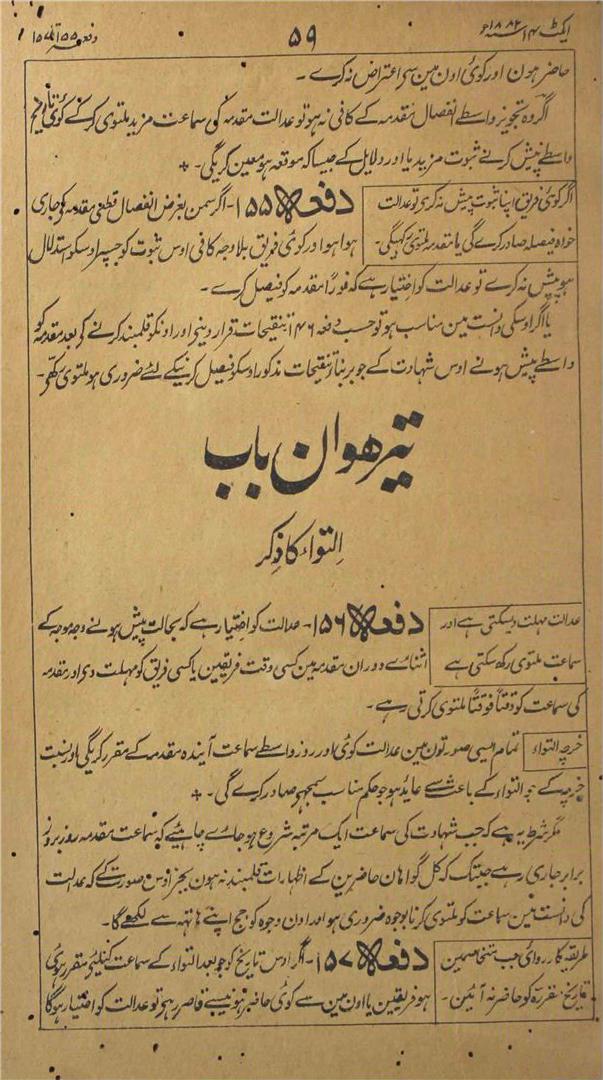 ایکٹ ۱۴ سنہ ۱۸۸۲ء
۵۹
دفعہ ۱۵۵ تا ۱۵۷
حاضر ہون اور کوئی اون مین سے اعتراض نہ کرے ۔
اگر وہ تجویز واسطے انفصال مقدمہ کے کافی نہ ہو تو عدالت مقدمہ کی سماعت مزید ملتوی کرکے کوئی تاریخ
واسطے پیش کرنے ثبوت مزید یا اور دلایل کے جیسا کہ موقعہ ہو معین کریگی ۔ +
اگر کوئی فریق اپنا ثبوت پیش نہ کرے تو عدالت
خواہ فیصلہ صادر کرے گی یا مقدمہ ملتوی رکہیگی ۔
دفعہ ۱۵۵ ۔ اگر سمن بغرض انفصال قطعی مقدمہ کے جاری
ہوا ہو اور کوئی فریق بلا وجہ کافی اوس ثبوت کو جسپر اوسکو استدلال
ہو پیش نہ کرے تو عدالت کو اختیار ہے کہ فوراً مقدمہ کو فیصل کرے ۔
یا اگر اوسکی دانست مین مناسب ہو تو حسب دفعہ ۱۴۶ تنقیحات قرار دینے اور اونکو قلمبند کرنے کے بعد مقدمہ کو
واسطے پیش ہونے اوس شہادت کے جو بربناے تنقیحات مذکور اوسکو فیصل کرنیکے لئے ضروری ہو ملتوی رکھے ۔
تیرھوان باب
التواء کا ذکر
عدالت مہلت دیسکتی ہے اور
سماعت ملتوی رکھ سکتی ہے
دفعہ ۱۵۶ ۔ عدالت کو اختیار ہے کہ بحالت پیش ہونے وجہ موجہ کے
اثناے دوران مقدمہ مین کسی وقت فریقین یا کسی فریق کو مہلت دے اور مقدمہ
کی سماعت کو وقتاً فوقتاً ملتوی کرتی رہے ۔
خرچہ التواء
تمام ایسی صورتون مین عدالت کوئی اور روز واسطے سماعت آیندہ مقدمہ کے مقرر کریگی اور نسبت
خرچہ کے جو التواء کے باعث سے عاید ہو جو حکم مناسب سمجھے صادر کرے گی ۔ +
مگر شرط یہ ہے کہ جب شہادت کی سماعت ایک مرتبہ شروع ہو جاے چاہیئے کہ سماعت مقدمہ روز بروز
برابر جاری رہے جبتک کہ کل گواہان حاضرین کے اظہارات قلمبند نہ ہون بجز اوس صورت کے کہ عدالت
کی دانست مین سماعت کو ملتوی کرنا بوجوہ ضروری ہو اور اون وجوہ کو جج اپنے ہاتھ سے لکھے گا ۔
طریقہ کارروائی جب متخاصمین
تاریخ مقررہ کو حاضر نہ آئین ۔
دفعہ ۱۵۷ ۔ اگر اوس تاریخ کو جو بعد التواء کے سماعت کیلئے مقرر ہوئی
ہو فریقین یا اون مین سے کوئی حاضر ہونیسے قاصر رہے تو عدالت کو اختیار ہوگا